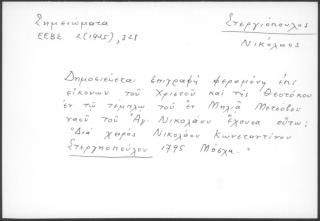 Σημειώματα
ΕΕΒΣ 2 (1925), 328
Στεργιόπουλος
Νικόλαος
Δημοσιεύεται ἐπιγραφή φερομένη ἐπί
εἰκόνων τοῦ Χριστοῦ καί τῆς Θεοτόκου
ἐν τῷ τέμπλῳ τοῦ ἐν Μηλιᾷ Μετσόβου
ναοῦ τοῦ Ἁγ. Νικολάου ἔχουσα οὕτω:
"Διά χειρός Νικολάου Κωνσταντίνου
Στεργηοπούλου 1795 Μόσχα."